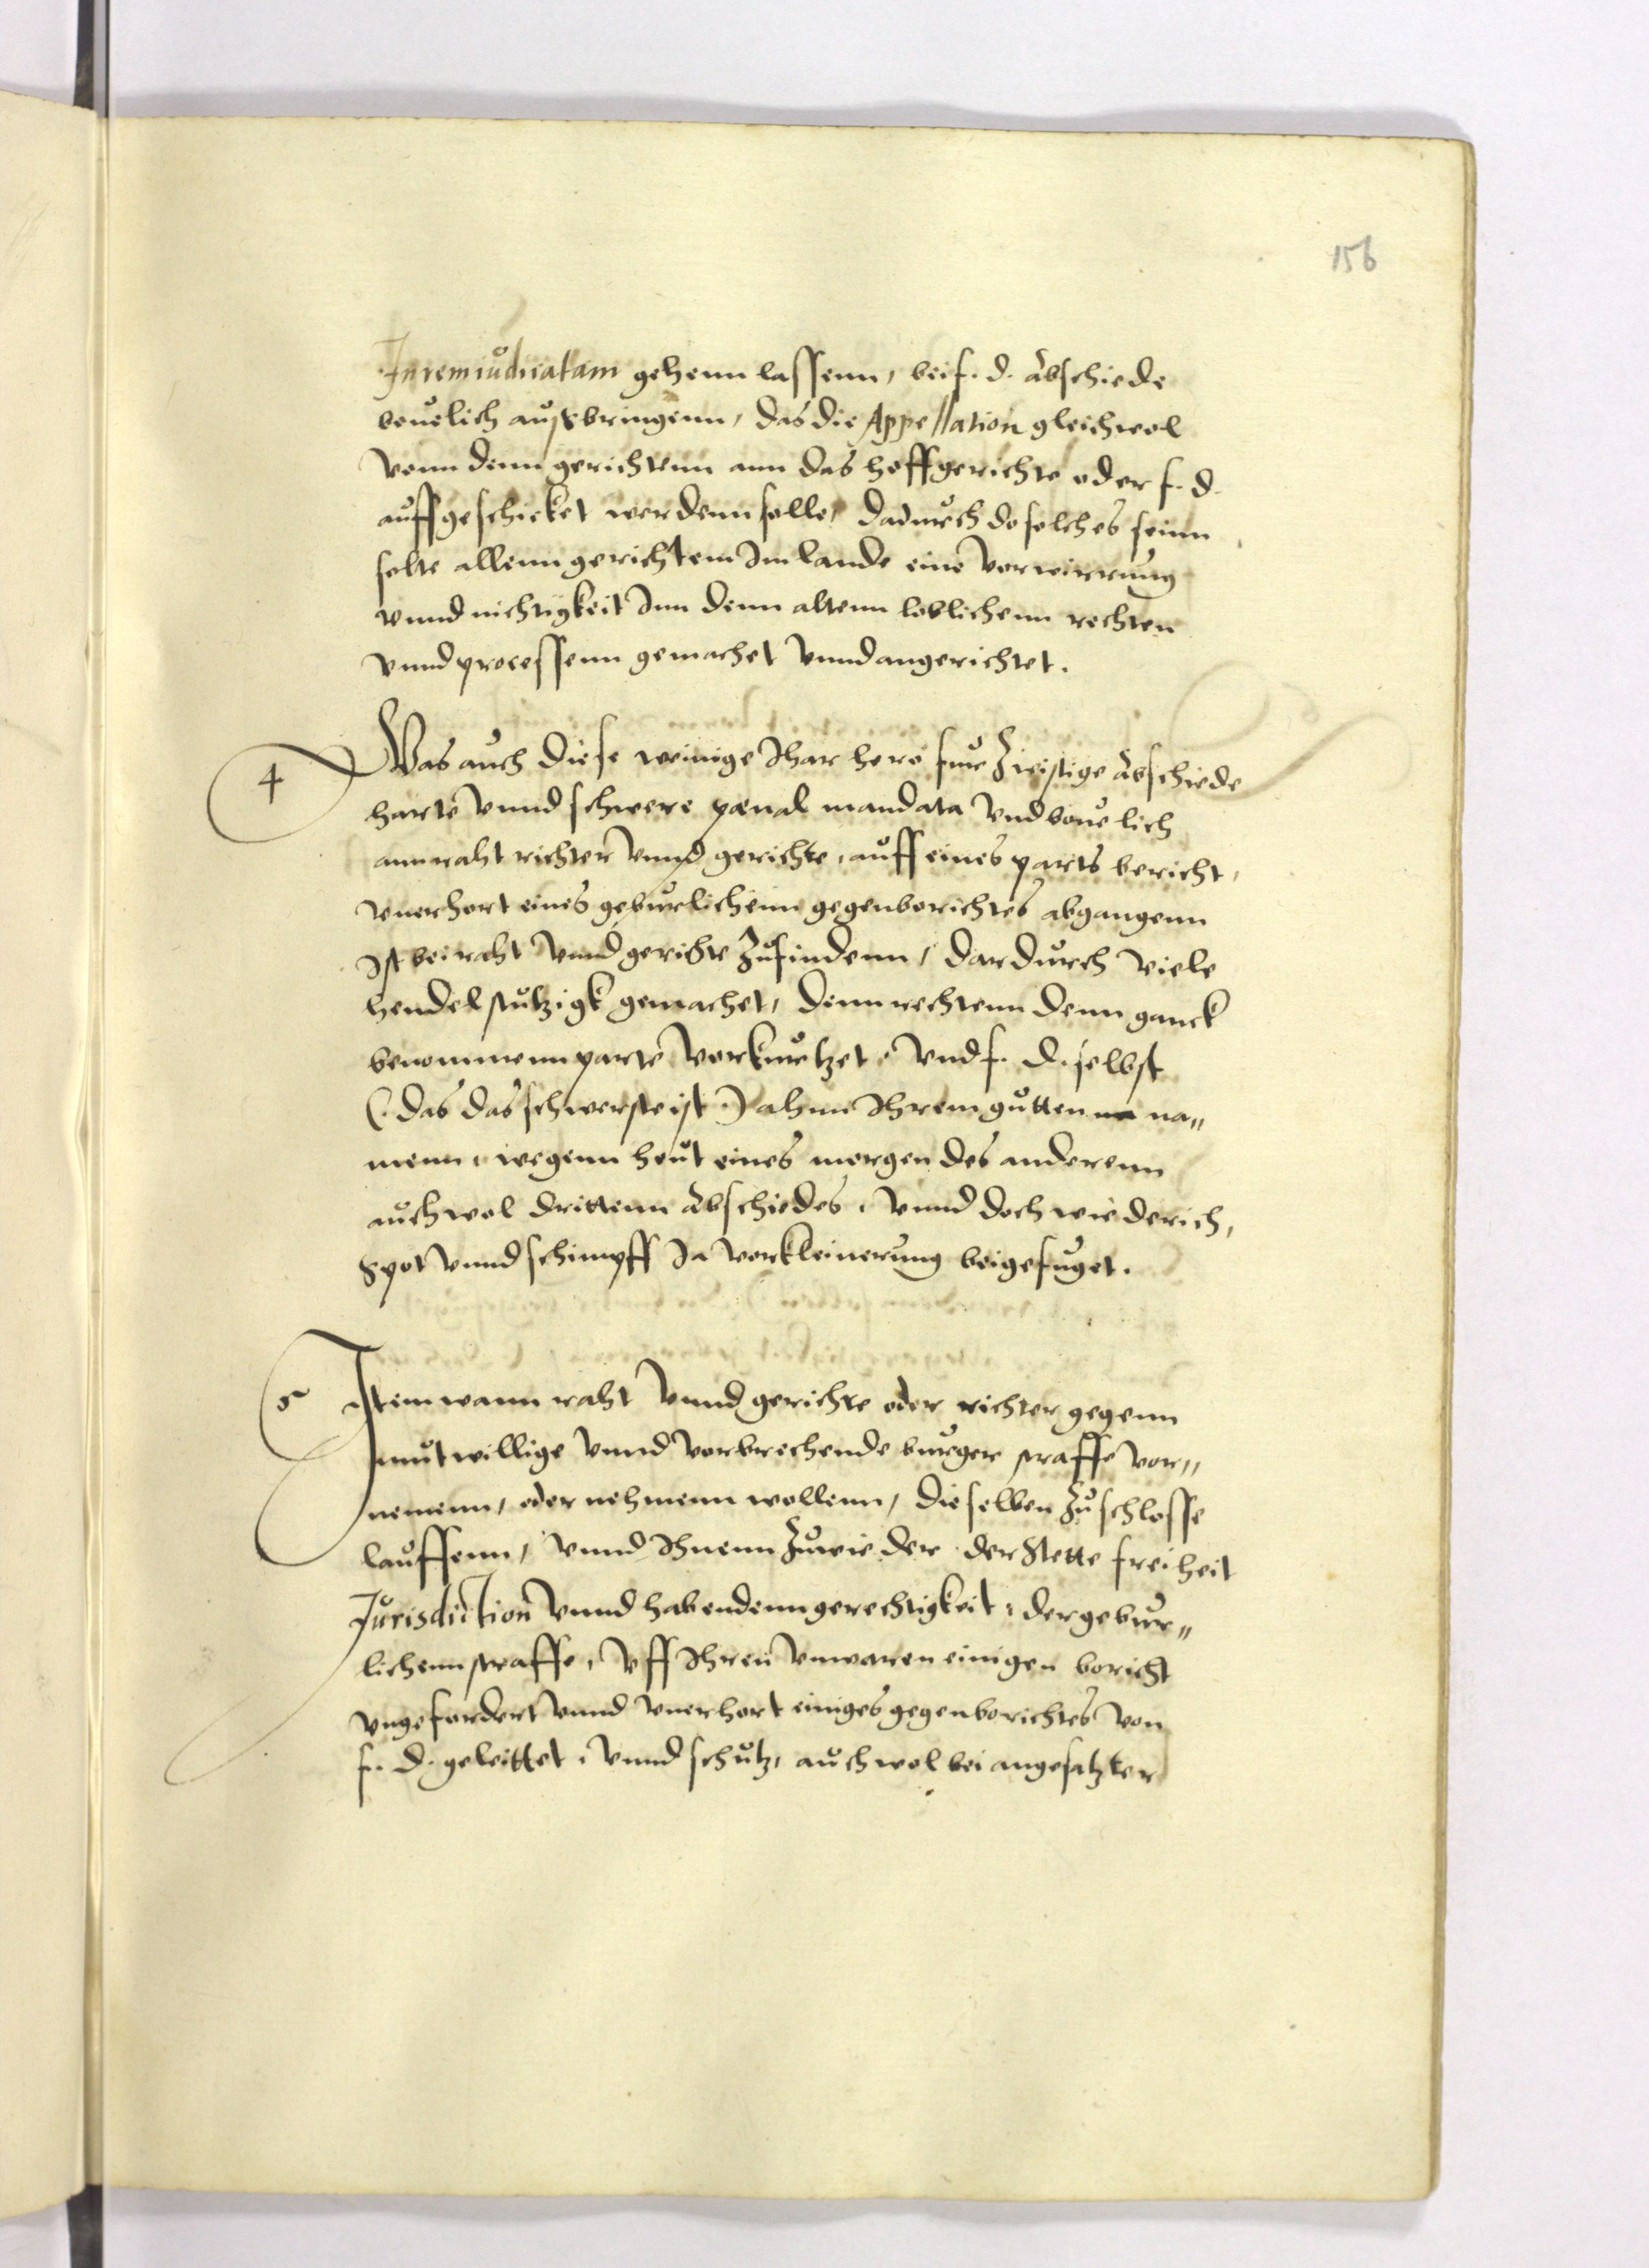 156
In rem iudicatam gehenn lassenn, bei f. d. abschiede
beuelich außbringenn, das die Appellation gleichwol
vonn denn gerichtenn ann das hoffgerichte oder f. d.
auffgeschicket werdenn solle, dadurch do solches seinn
solte allenn gerichtenn Im lande eine vorwirrung
vnnd nichtigkeit Inn denn altenn loblichenn rechten
vnnd processenn gemachet vnnd angerichtet.
4 Was auch diese weinige Ihar hero fur zwistige abschiede
harte vnnd schwere pænal mandata vnd beuelich
ann raht richter vnnd gerichte, auff eines parts bericht,
vnerhort eines geburlichenn gegenberichtes abgangenn
Ist bei raht vnnd gerichte zufindenn, dardurch viele
hendel stutzigk gemachet, denn rechtenn denn ganck
benommenn parte vorkurtzet, vnd f. d. selbst
(: das das schwerste ist :) ahnn Ihrem gutten na„
menn, wegenn heut eines morgen des anderenn
auch wol drittenn abschiedes, vnnd doch wiederich,
Spot vnnd schimpff Ja vorkleinerung beigefuget.
5 Item wann raht vnnd gerichte oder richter gegenn
mutwillige vnnd vorbrechende burger straffe vor„
nemenn, oder nehmenn wollenn, dieselben zu schlosse
lauffenn, vnnd Ihnenn zuwieder der Stette freiheit
Jurisdiction vnnd habendenn gerechtigkeit, der gebur„
lichenn straffe, vff Ihren vnwaren einigen bericht
vngefordert vnnd vnerhort einiges gegenberichtes von
f. d. geleittet, vnnd schutz, auch wol bei angesatzter